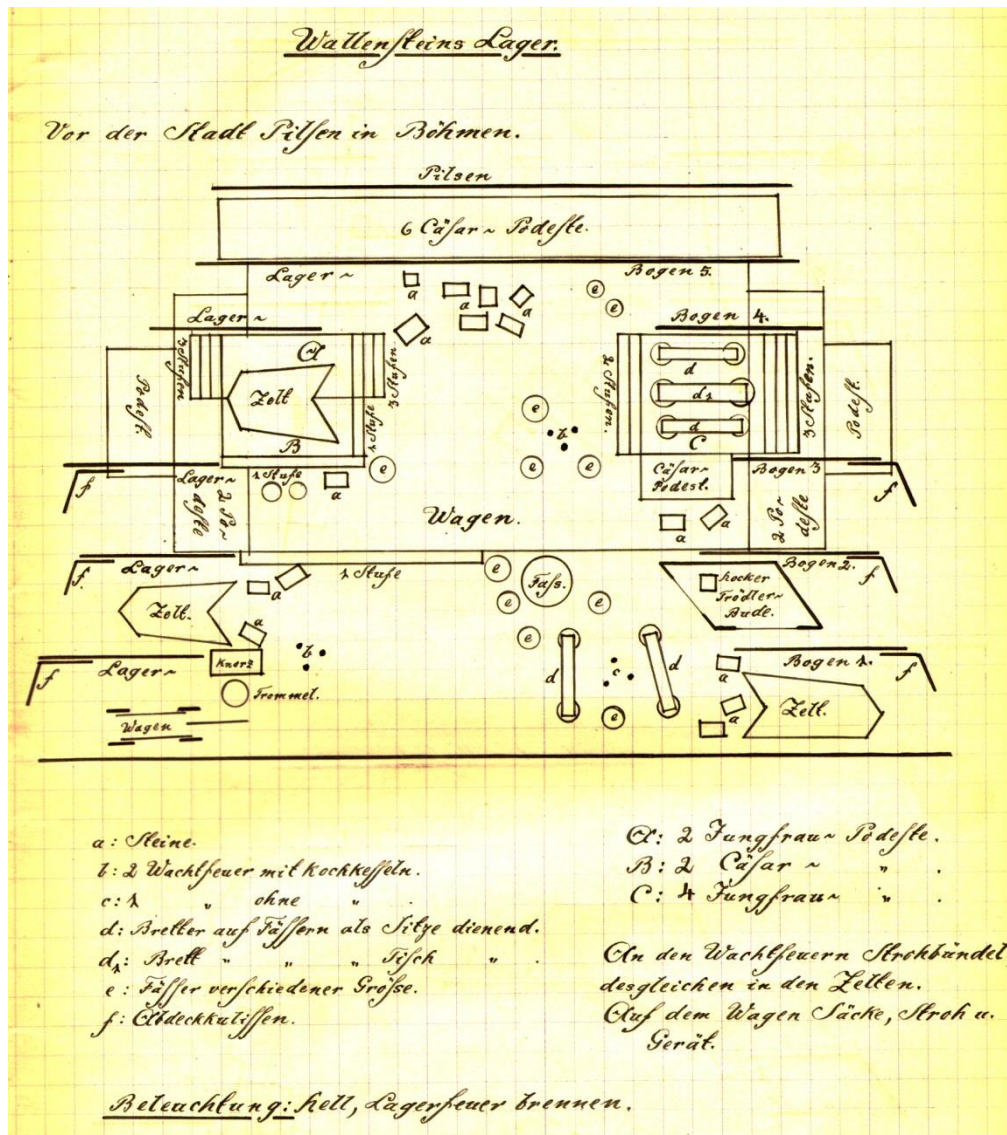 Wallensteins Lager.
Vor der Stadt Pilsen in Böhmen.
Pilsen
6 Cäsar~ Podeste.
Lager~
Bogen 5.
a
a
a
a
e
e
Lager~
Bogen 4.
3 Stufen
A
3 Stufen
Zelt
B
1 Stufe
2 Stufen.
d
d1
d
C
3 Stufen.
Podest.
Podest.
e
b
e
e
f
Lager~
2 Po-
deste
1 Stufe
a
e
Cäsar-
Podest.
Bogen 3
2 Po-
deste
f
Wagen.
a
a
f
Lager~
1 Stufe
a
e
Fass.
e
e
e
Bogen 2.
f
Hocker
Trödler-
Bude.
Zelt.
a
Knorz
b
f
Lager~
Trommel.
Wagen
d
c
d
e
a
a
Bogen 1.
f
Zelt.
a: Steine.
b: 2 Wachtfeuer mit Kochkesseln.
c: 1 " ohne " .
d: Bretter auf Fässern als Sitze dienend.
d1: Brett " " " Tisch " .
e: Fässer verschiedener Größe.
f: Abdeckkulissen.
A: 2 Jungfrau~ Podeste.
B: 2 Cäsar ~ " .
C: 4 Jungfrau~ " .
An den Wachtfeuern Strohbündel
desgleichen in den Zelten.
Auf dem Wagen Säcke, Stroh u.
Gerät.
Beleuchtung: Hell, Lagerfeuer brennen.